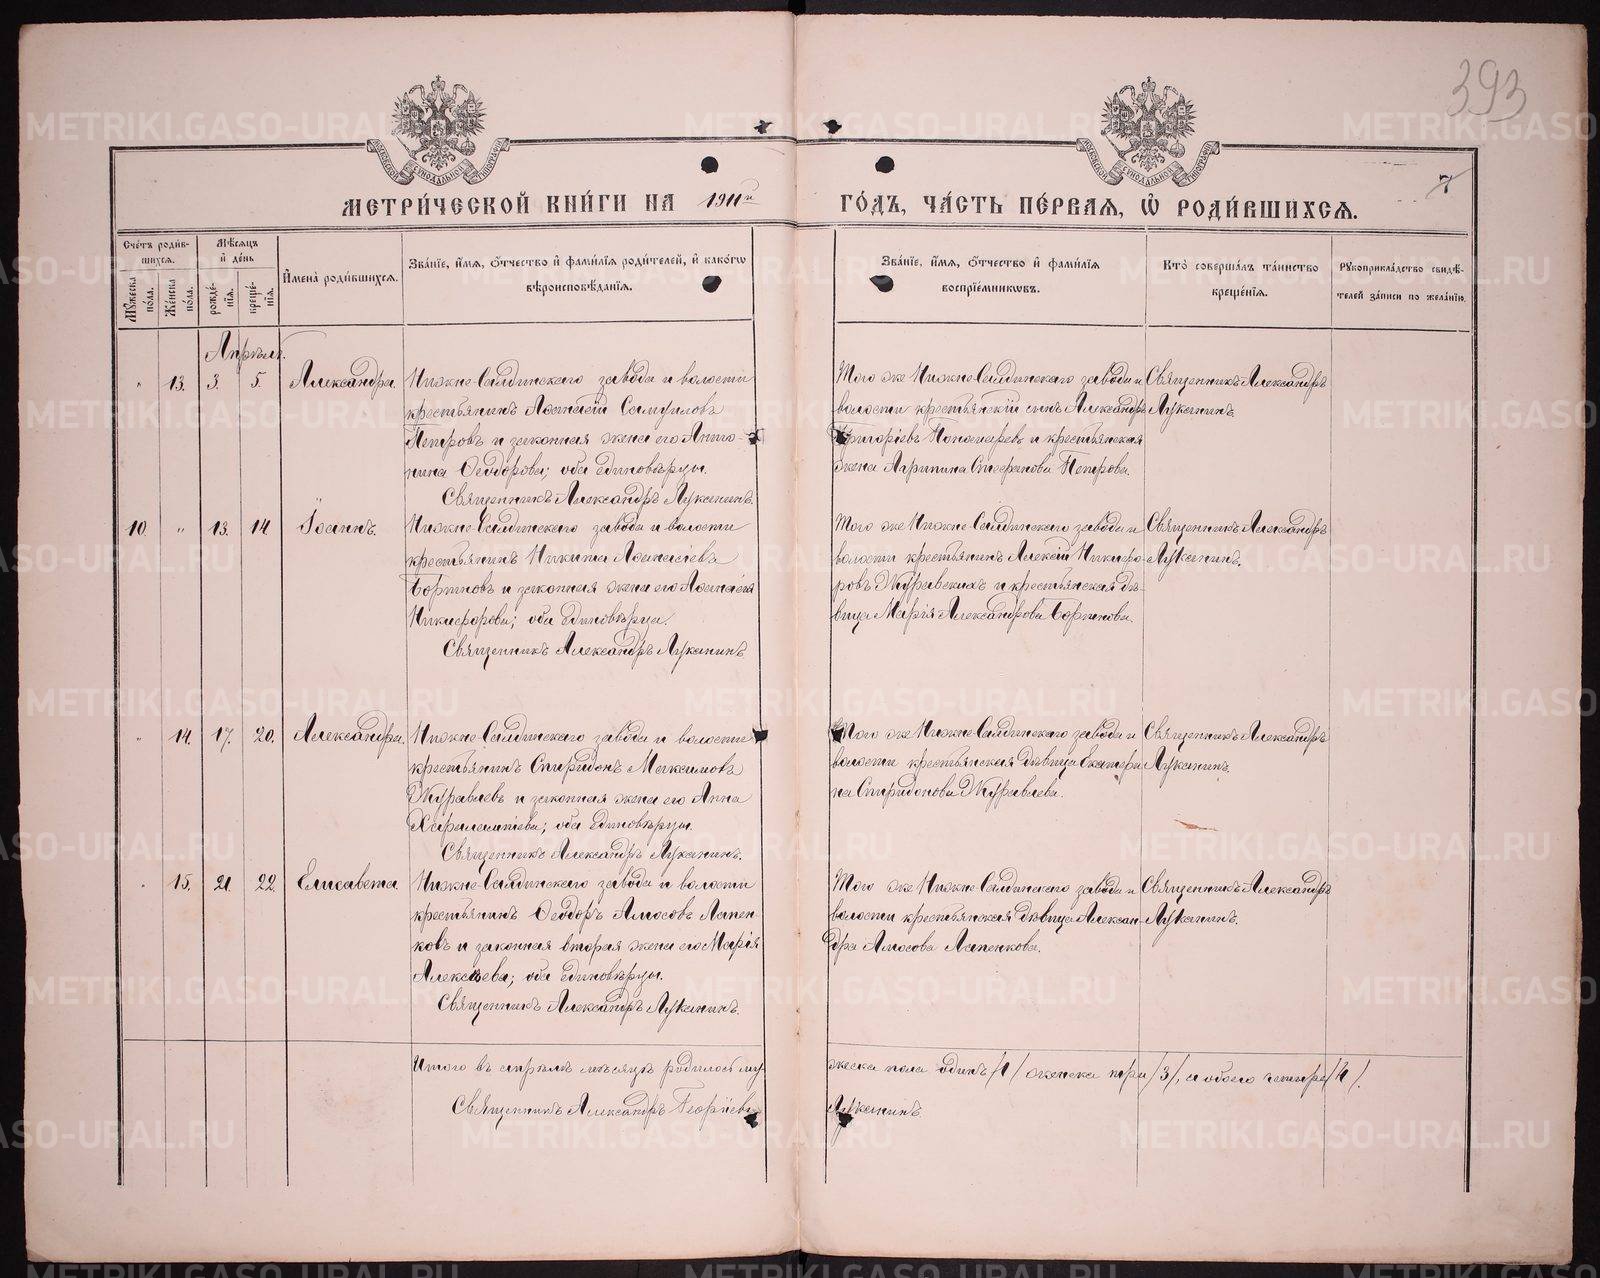 393
7
МЕТРИ́ЧЕСКОЙ КНИ́ГИ НА 1911й ГО́ДЪ, ЧА́СТЬ ПЕ́РВАЯ, Ѿ РОДИ́ВШИХСЯ.
Сче́тъ роди́вшихся.
Му́жеска по́ла.
Же́нска по́ла.
Мѣ́сяцъ и де́нь
рожде́нія.
креще́нія.
Имена́ роди́вшихся.
Зва́ніе, и́мя, о́тчество и фами́лія роди́телей, и како́гѡ
вѣроисповѣ́данія.
Зва́ніе, и́мя, о́тчество и фами́лія
воспріе́мниковъ.
Кто̀ соверша́лъ та́инство
креще́нія.
Рукоприкла́дство свидѣ́-
телей за́писи по жела́нію.
Апрѣль.
" 13. 3. 5. Александра.
Нижне-Салдинскаго завода и волости
крестьянинъ Аѳанасій Самуиловъ
Петровъ и законная жена его Анто-
нина Ѳеодорова; оба единовѣрцы.
Священникъ Александръ Луканинъ.
Того же Нижне-Салдинскаго завода и
волости крестьянскій сынъ Александръ
Григоріевъ Пономаревъ и крестьянская
жена Агрипина Стефанова Петрова.
Священникъ Александръ
Луканинъ.
10. " 13. 14. Іоаннъ.
Нижне-Салдинскаго завода и волости
крестьянинъ Никита Аѳанасіевъ
Зориновъ и законная жена его Аѳанасія
Никифорова; оба единовѣрцы.
Священникъ Александръ Луканинъ
Того же Нижне-Салдинскаго завода и
волости крестьянинъ Алексій Никифо-
ровъ Журавскихъ и крестьянская дѣ-
вица Марія Александрова Зоринова.
Священникъ Александръ
Луканинъ.
" 14. 17. 20. Александра.
Нижне-Салдинскаго завода и волости
крестьянинъ Спиридонъ Максимовъ
Журавлевъ и законная жена его Анна
Харалампіева; оба единовѣрцы.
Священникъ Александръ Луканинъ.
Того же Нижне-Салдинскаго завода и
волости крестьянская дѣвица Екатери
на Спиридонова Журавлева.
Священникъ Александръ
Луканинъ.
" 15. 21. 22. Елисавета
Нижне-Салдинскаго завода и волости
крестьянинъ Ѳеодоръ Амосовъ Лапен-
ковъ и законная вторая жена его Марія
Алексѣева; оба единовѣрцы.
Священникъ Александръ Луканинъ.
Того же Нижне-Салдинскаго завода и
волости крестьянская дѣвица Алексан-
дра Амосова Лапенкова.
Священникъ Александръ
Луканинъ.
Итого въ апрѣлѣ мѣсяцѣ родилось му-
жеска пола одинъ /1/ женска три /3/, а обоего четыре /4/.
Священникъ Александръ Георгіевъ
Луканинъ
METRIKI.GASO-URAL.RU